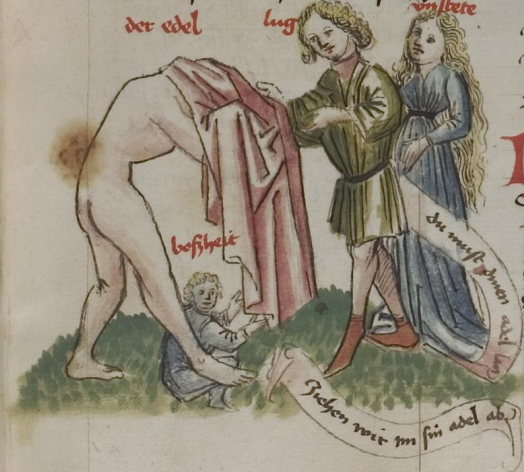 der edel
lug
vnstete
boßheit
du must deinen adel
Ziehen wir im sin adel ab